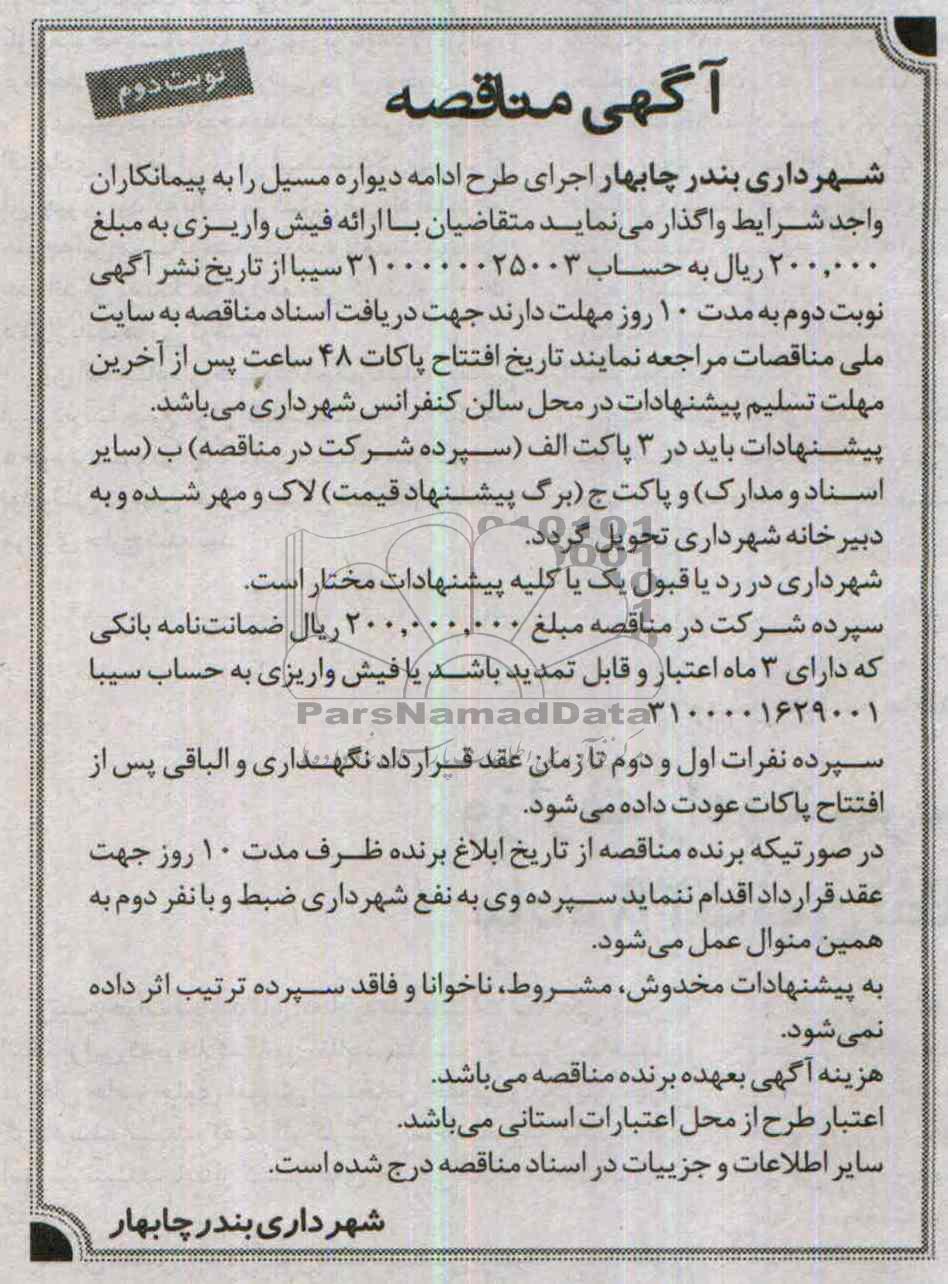 نوبت دوم
آگهی مناقصه
شهرداری بندر چابهار اجرای طرح ادامه دیواره مسیل را به پیمانکاران
واجد شرایط واگذار می‌نماید متقاضیان با ارائه فیش واریزی به مبلغ
۲۰۰,۰۰۰ ریال به حساب ۳۱۰۰۰۰۰۰۲۵۰۰۳ سیبا از تاریخ نشر آگهی
نوبت دوم به مدت ۱۰ روز مهلت دارند جهت دریافت اسناد مناقصه به سایت
ملی مناقصات مراجعه نمایند تاریخ افتتاح پاکات ۴۸ ساعت پس از آخرین
مهلت تسلیم پیشنهادات در محل سالن کنفرانس شهرداری می‌باشد.
پیشنهادات باید در ۳ پاکت الف (سپرده شرکت در مناقصه) ب (سایر
اسناد و مدارک) و پاکت ج (برگ پیشنهاد قیمت) لاک و مهر شده و به
دبیرخانه شهرداری تحویل گردد.
شهرداری در رد یا قبول یک یا کلیه پیشنهادات مختار است.
سپرده شرکت در مناقصه مبلغ ۲۰۰,۰۰۰,۰۰۰ ریال ضمانت‌نامه بانکی
که دارای ۳ ماه اعتبار و قابل تمدید باشد یا فیش واریزی به حساب سیبا
۳۱۰۰۰۰۱۶۲۹۰۰۱
ParsNamadData
سپرده نفرات اول و دوم تا زمان عقد قرارداد نگهداری و الباقی پس از
افتتاح پاکات عودت داده می‌شود.
در صورتیکه برنده مناقصه از تاریخ ابلاغ برنده ظرف مدت ۱۰ روز جهت
عقد قرارداد اقدام ننماید سپرده وی به نفع شهرداری ضبط و با نفر دوم به
همین منوال عمل می‌شود.
به پیشنهادات مخدوش، مشروط، ناخوانا و فاقد سپرده ترتیب اثر داده
نمی‌شود.
هزینه آگهی بعهده برنده مناقصه می‌باشد.
اعتبار طرح از محل اعتبارات استانی می‌باشد.
سایر اطلاعات و جزییات در اسناد مناقصه درج شده است.
شهرداری بندر چابهار